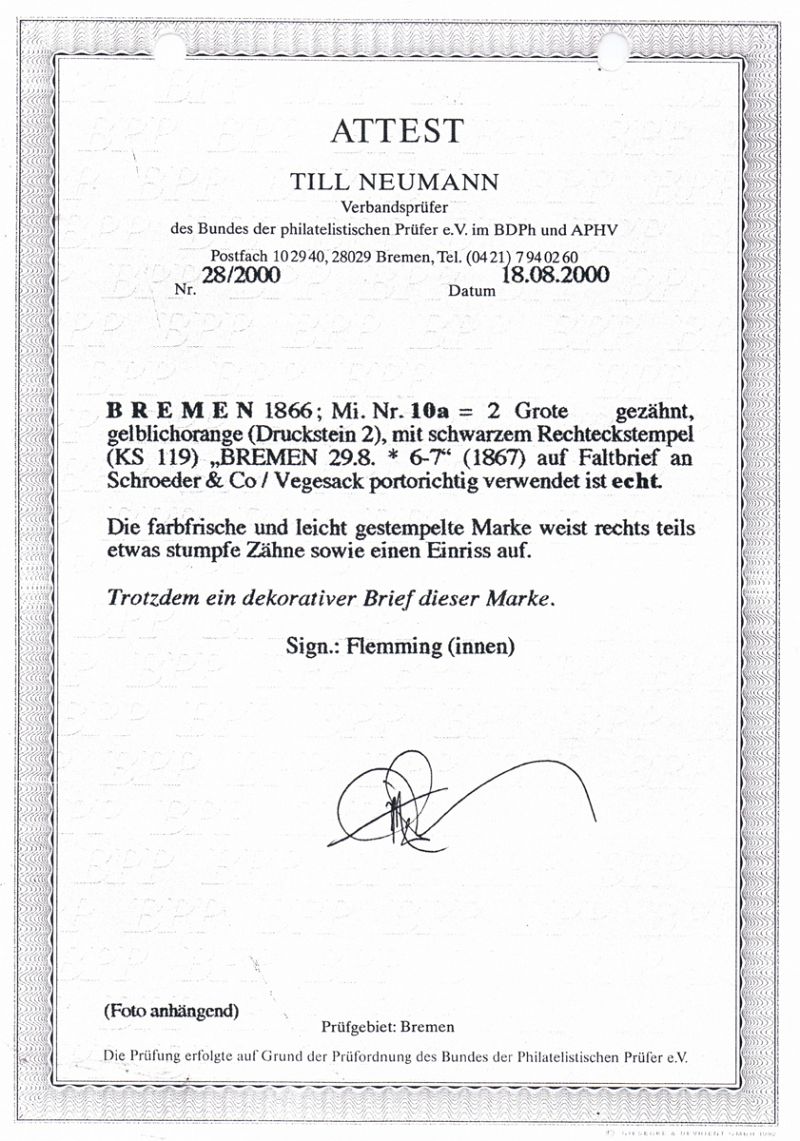 ATTEST
TILL NEUMANN
Verbandsprüfer
des Bundes der philatelistischen Prüfer e.V. im BDPh und APHV
Postfach 10 29 40, 28029 Bremen, Tel. (04 21) 7 94 02 60
Nr. 28/2000 Datum 18.08.2000
BREMEN 1866; Mi. Nr. 10a = 2 Grote gezähnt,
gelblichorange (Druckstein 2), mit schwarzem Rechteckstempel
(KS 119) „BREMEN 29.8. * 6-7“ (1867) auf Faltbrief an
Schroeder & Co / Vegesack portorichtig verwendet ist echt.
Die farbfrische und leicht gestempelte Marke weist rechts teils
etwas stumpfe Zähne sowie einen Einriss auf.
Trotzdem ein dekorativer Brief dieser Marke.
Sign.: Flemming (innen)
(Foto anhängend)
Prüfgebiet: Bremen
Die Prüfung erfolgte auf Grund der Prüfordnung des Bundes der Philatelistischen Prüfer e.V.